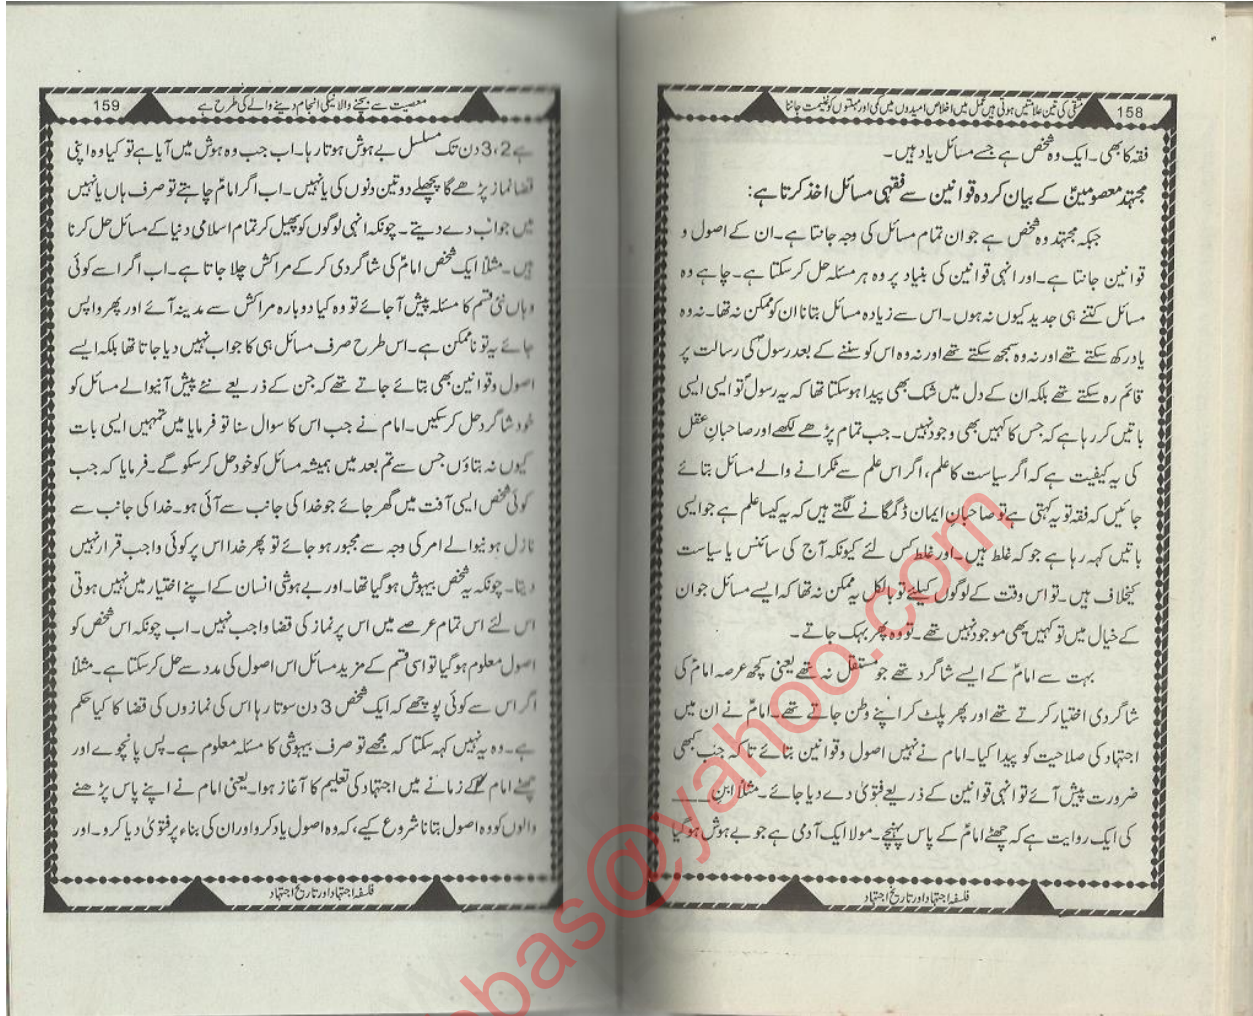 158 متقی کی تین علامتیں ہوتی ہیں عمل میں اخلاص امیدوں میں کمی اور مہلتوں کو غنیمت جاننا
فقہ کا بھی۔ ایک وہ شخص ہے جسے مسائل یاد ہیں۔
مجتہد معصومینؑ کے بیان کردہ قوانین سے فقہی مسائل اخذ کرتا ہے:
جبکہ مجتہد وہ شخص ہے جو ان تمام مسائل کی وجہ جانتا ہے۔ ان کے اصول و
قوانین جانتا ہے۔ اور انہی قوانین کی بنیاد پر وہ ہر مسئلہ حل کر سکتا ہے۔ چاہے وہ
مسائل کتنے ہی جدید کیوں نہ ہوں۔ اس سے زیادہ مسائل بتانا ان کو ممکن نہ تھا۔ نہ وہ
یاد رکھ سکتے تھے اور نہ وہ سمجھ سکتے تھے اور نہ وہ اس کو سننے کے بعد رسولؐ کی رسالت پر
قائم رہ سکتے تھے بلکہ ان کے دل میں شک بھی پیدا ہو سکتا تھا کہ یہ رسولؐ تو ایسی ایسی
باتیں کر رہا ہے کہ جس کا کہیں بھی وجود نہیں۔ جب تمام پڑھے لکھے اور صاحبانِ عقل
کی یہ کیفیت ہے کہ اگر سیاست کا علم، اگر اس علم سے ٹکرانے والے مسائل بتائے
جائیں کہ فقہ تو یہ کہتی ہے تو صاحبانِ ایمان ڈگمگانے لگتے ہیں کہ یہ کیسا علم ہے جو ایسی
باتیں کہہ رہا ہے جو کہ غلط ہیں۔ اور غلط کس لئے کیونکہ آج کی سائنس یا سیاست
کیخلاف ہیں۔ تو اس وقت کے لوگوں کیلئے تو بالکل یہ ممکن نہ تھا کہ ایسے مسائل جو ان
کے خیال میں تو کہیں بھی موجود نہیں تھے۔ تو وہ پھر بہک جاتے۔
بہت سے امامؑ کے ایسے شاگرد تھے جو مستقل نہ تھے یعنی کچھ عرصہ امامؑ کی
شاگردی اختیار کرتے تھے اور پھر پلٹ کر اپنے وطن جاتے تھے۔ امامؑ نے ان میں
اجتہاد کی صلاحیت کو پیدا کیا۔ امام نے انہیں اصول و قوانین بتائے تاکہ جب کبھی
ضرورت پیش آئے تو انہی قوانین کے ذریعے فتویٰ دے دیا جائے۔ مثلاً ابنِ ____
کی ایک روایت ہے کہ چھٹے امامؑ کے پاس پہنچے۔ مولا ایک آدمی ہے جو بے ہوش ہو گیا
فلسفہ اجتہاد اور تاریخ اجتہاد
159 معصیت سے بچنے والا نیکی انجام دینے والے کی طرح ہے
ہے 2،3 دن تک مسلسل بے ہوش ہوتا رہا۔ اب جب وہ ہوش میں آیا ہے تو کیا وہ اپنی
قضا نماز پڑھے گا پچھلے دو تین دنوں کی یا نہیں۔ اب اگر امامؑ چاہتے تو صرف ہاں یا نہیں
میں جواب دے دیتے۔ چونکہ انہی لوگوں کو پھیل کر تمام اسلامی دنیا کے مسائل حل کرنا
ہیں۔ مثلاً ایک شخص امامؑ کی شاگردی کر کے مراکش چلا جاتا ہے۔ اب اگر اسے کوئی
وہاں نئی قسم کا مسئلہ پیش آ جائے تو وہ کیا دوبارہ مراکش سے مدینہ آئے اور پھر واپس
جائے یہ تو ناممکن ہے۔ اس طرح صرف مسائل ہی کا جواب نہیں دیا جاتا تھا بلکہ ایسے
اصول و قوانین بھی بتائے جاتے تھے کہ جن کے ذریعے نئے پیش آنیوالے مسائل کو
خود شاگرد حل کر سکیں۔ امام نے جب اس کا سوال سنا تو فرمایا میں تمہیں ایسی بات
کیوں نہ بتاؤں جس سے تم بعد میں ہمیشہ مسائل کو خود حل کر سکو گے۔ فرمایا کہ جب
کوئی شخص ایسی آفت میں گھر جائے جو خدا کی جانب سے آئی ہو۔ خدا کی جانب سے
نازل ہونیوالے امر کی وجہ سے مجبور ہو جائے تو پھر خدا اس پر کوئی واجب قرار نہیں
دیتا۔ چونکہ یہ شخص بیہوش ہو گیا تھا۔ اور بے ہوشی انسان کے اپنے اختیار میں نہیں ہوتی
اس لئے اس تمام عرصے میں اس پر نماز کی قضا واجب نہیں۔ اب چونکہ اس شخص کو
اصول معلوم ہو گیا تو اسی قسم کے مزید مسائل اس اصول کی مدد سے حل کر سکتا ہے۔ مثلاً
اگر اس سے کوئی پوچھے کہ ایک شخص 3 دن سوتا رہا اس کی نمازوں کی قضا کا کیا حکم
ہے۔ وہ یہ نہیں کہہ سکتا کہ مجھے تو صرف بیہوشی کا مسئلہ معلوم ہے۔ پس پانچوے اور
چھٹے امام کے زمانے میں اجتہاد کی تعلیم کا آغاز ہوا۔ یعنی امام نے اپنے پاس پڑھنے
والوں کو وہ اصول بتانا شروع کیے، کہ وہ اصول یاد کرو اور ان کی بناء پر فتویٰ دیا کرو۔ اور
فلسفہ اجتہاد اور تاریخ اجتہاد
bas@yahoo.com